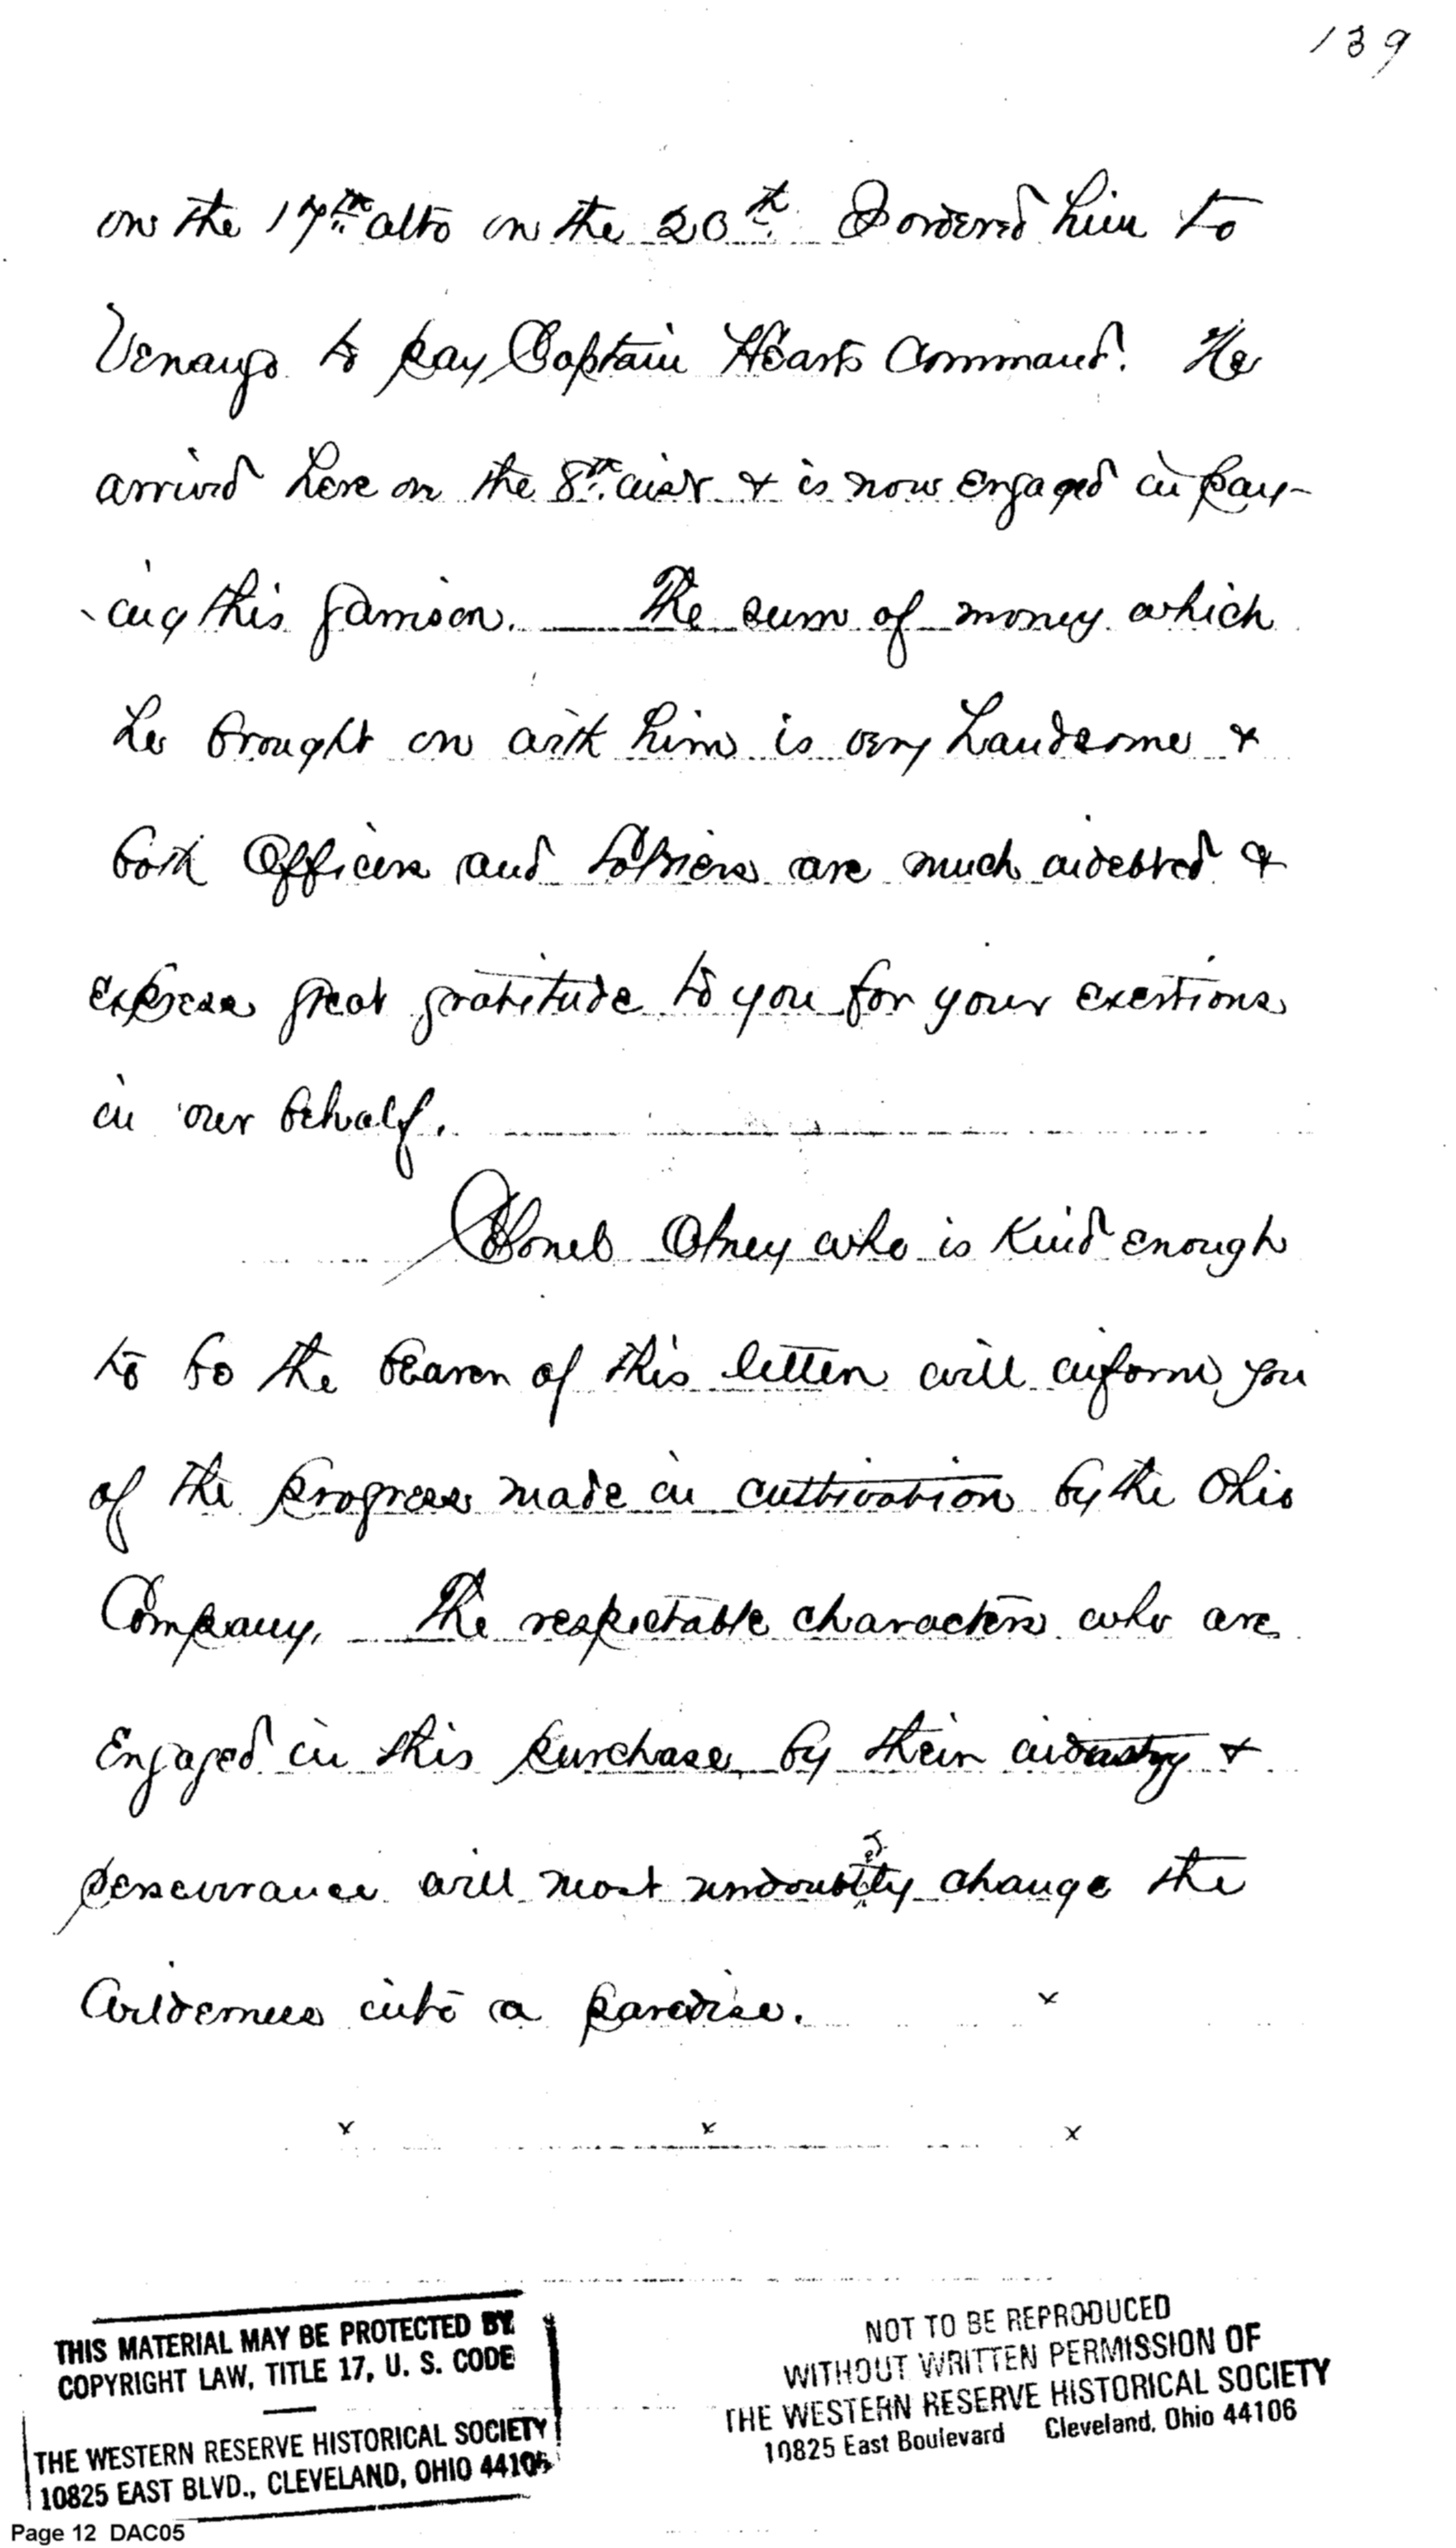 139
on the 17th ulto on the 20th I ordered him to
Venango to pay Captain Hearts Command. He
arrived here on the 8th inst & is now engaged in pay-
ing this garrison. The sum of money which
he brought on with him is very handsome &
both Officers and soldiers are much indebted &
express great gratitude to you for your exertions
in our behalf.
Colonel Olney who is kind enough
to be the bearer of this letter will inform you
of the progress made in cultivation by the Ohio
Company. The respectable characters who are
engaged in this purchase by their industry &
perseverance will most undoubtedly change the
wilderness into a paradise. x
x x x
THIS MATERIAL MAY BE PROTECTED BY
COPYRIGHT LAW, TITLE 17, U. S. CODE
THE WESTERN RESERVE HISTORICAL SOCIETY
10825 EAST BLVD., CLEVELAND, OHIO 44106
NOT TO BE REPRODUCED
WITHOUT WRITTEN PERMISSION OF
THE WESTERN RESERVE HISTORICAL SOCIETY
10825 East Boulevard Cleveland, Ohio 44106
Page 12 DAC05